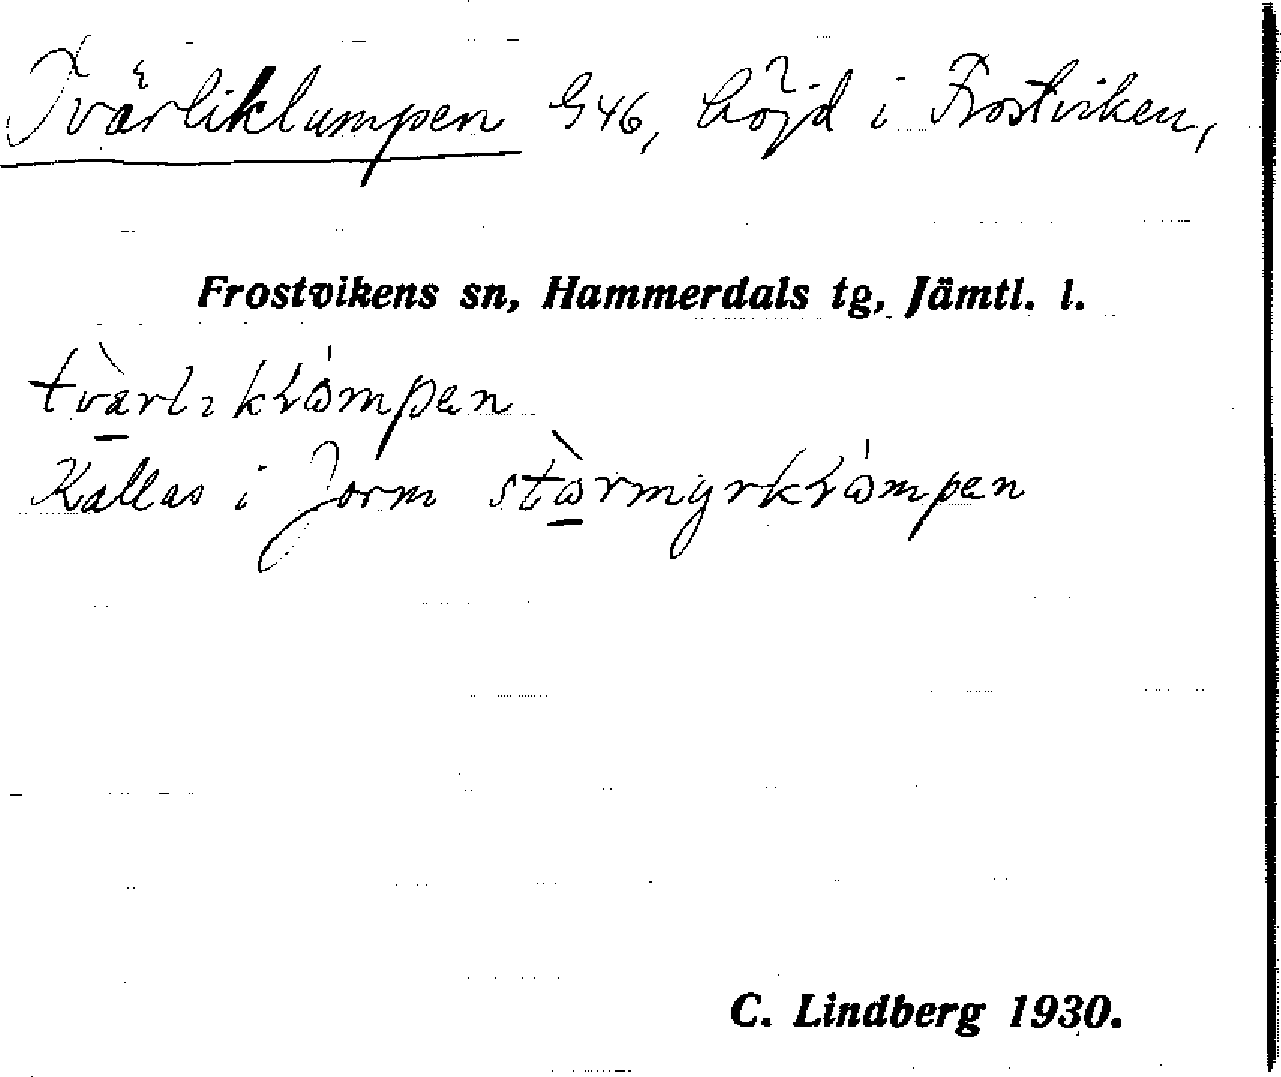 Tvärliklumpen 946, höjd i Frostviken,
Frostvikens sn, Hammerdals tg, Jämtl. l.
Kallas i Jorm
C. Lindberg 1930.